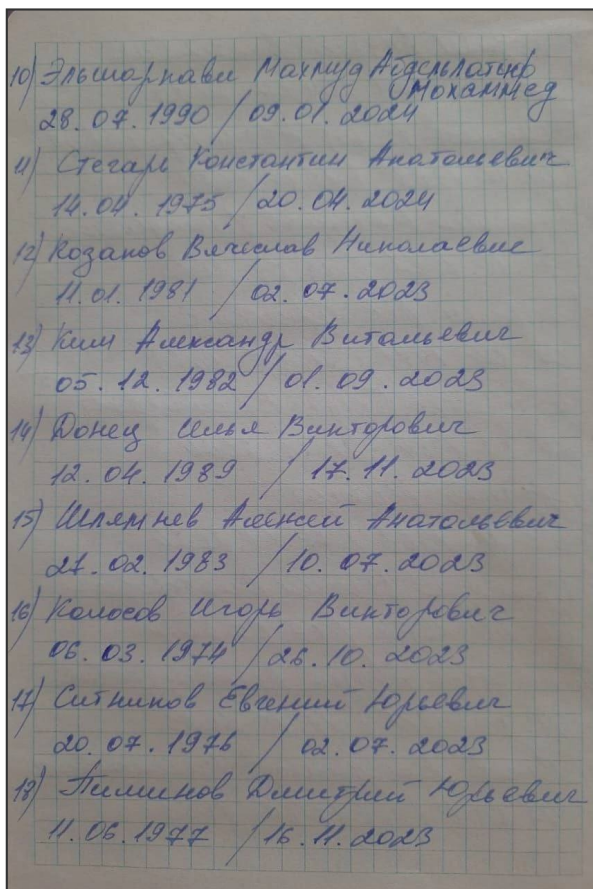 10) Эльшарпави Махмуд Абдельлатиф
Мохаммед
28.07.1990 / 09.01.2024
11) Стегарь Константин Анатольевич
14.04.1975 / 20.04.2024
12) Козаков Вячеслав Николаевич
11.01.1981 / 02.07.2023
13) Ким Александр Витальевич
05.12.1982 / 01.09.2023
14) Донец Илья Викторович
12.04.1989 / 17.11.2023
15) Шлямнев Алексей Анатольевич
27.02.1983 / 10.07.2023
16) Колосов Игорь Викторович
06.03.1974 / 26.10.2023
17) Ситников Евгений Юрьевич
20.07.1976 / 02.07.2023
18) Пиминов Дмитрий Юрьевич
11.06.1977 / 16.11.2023